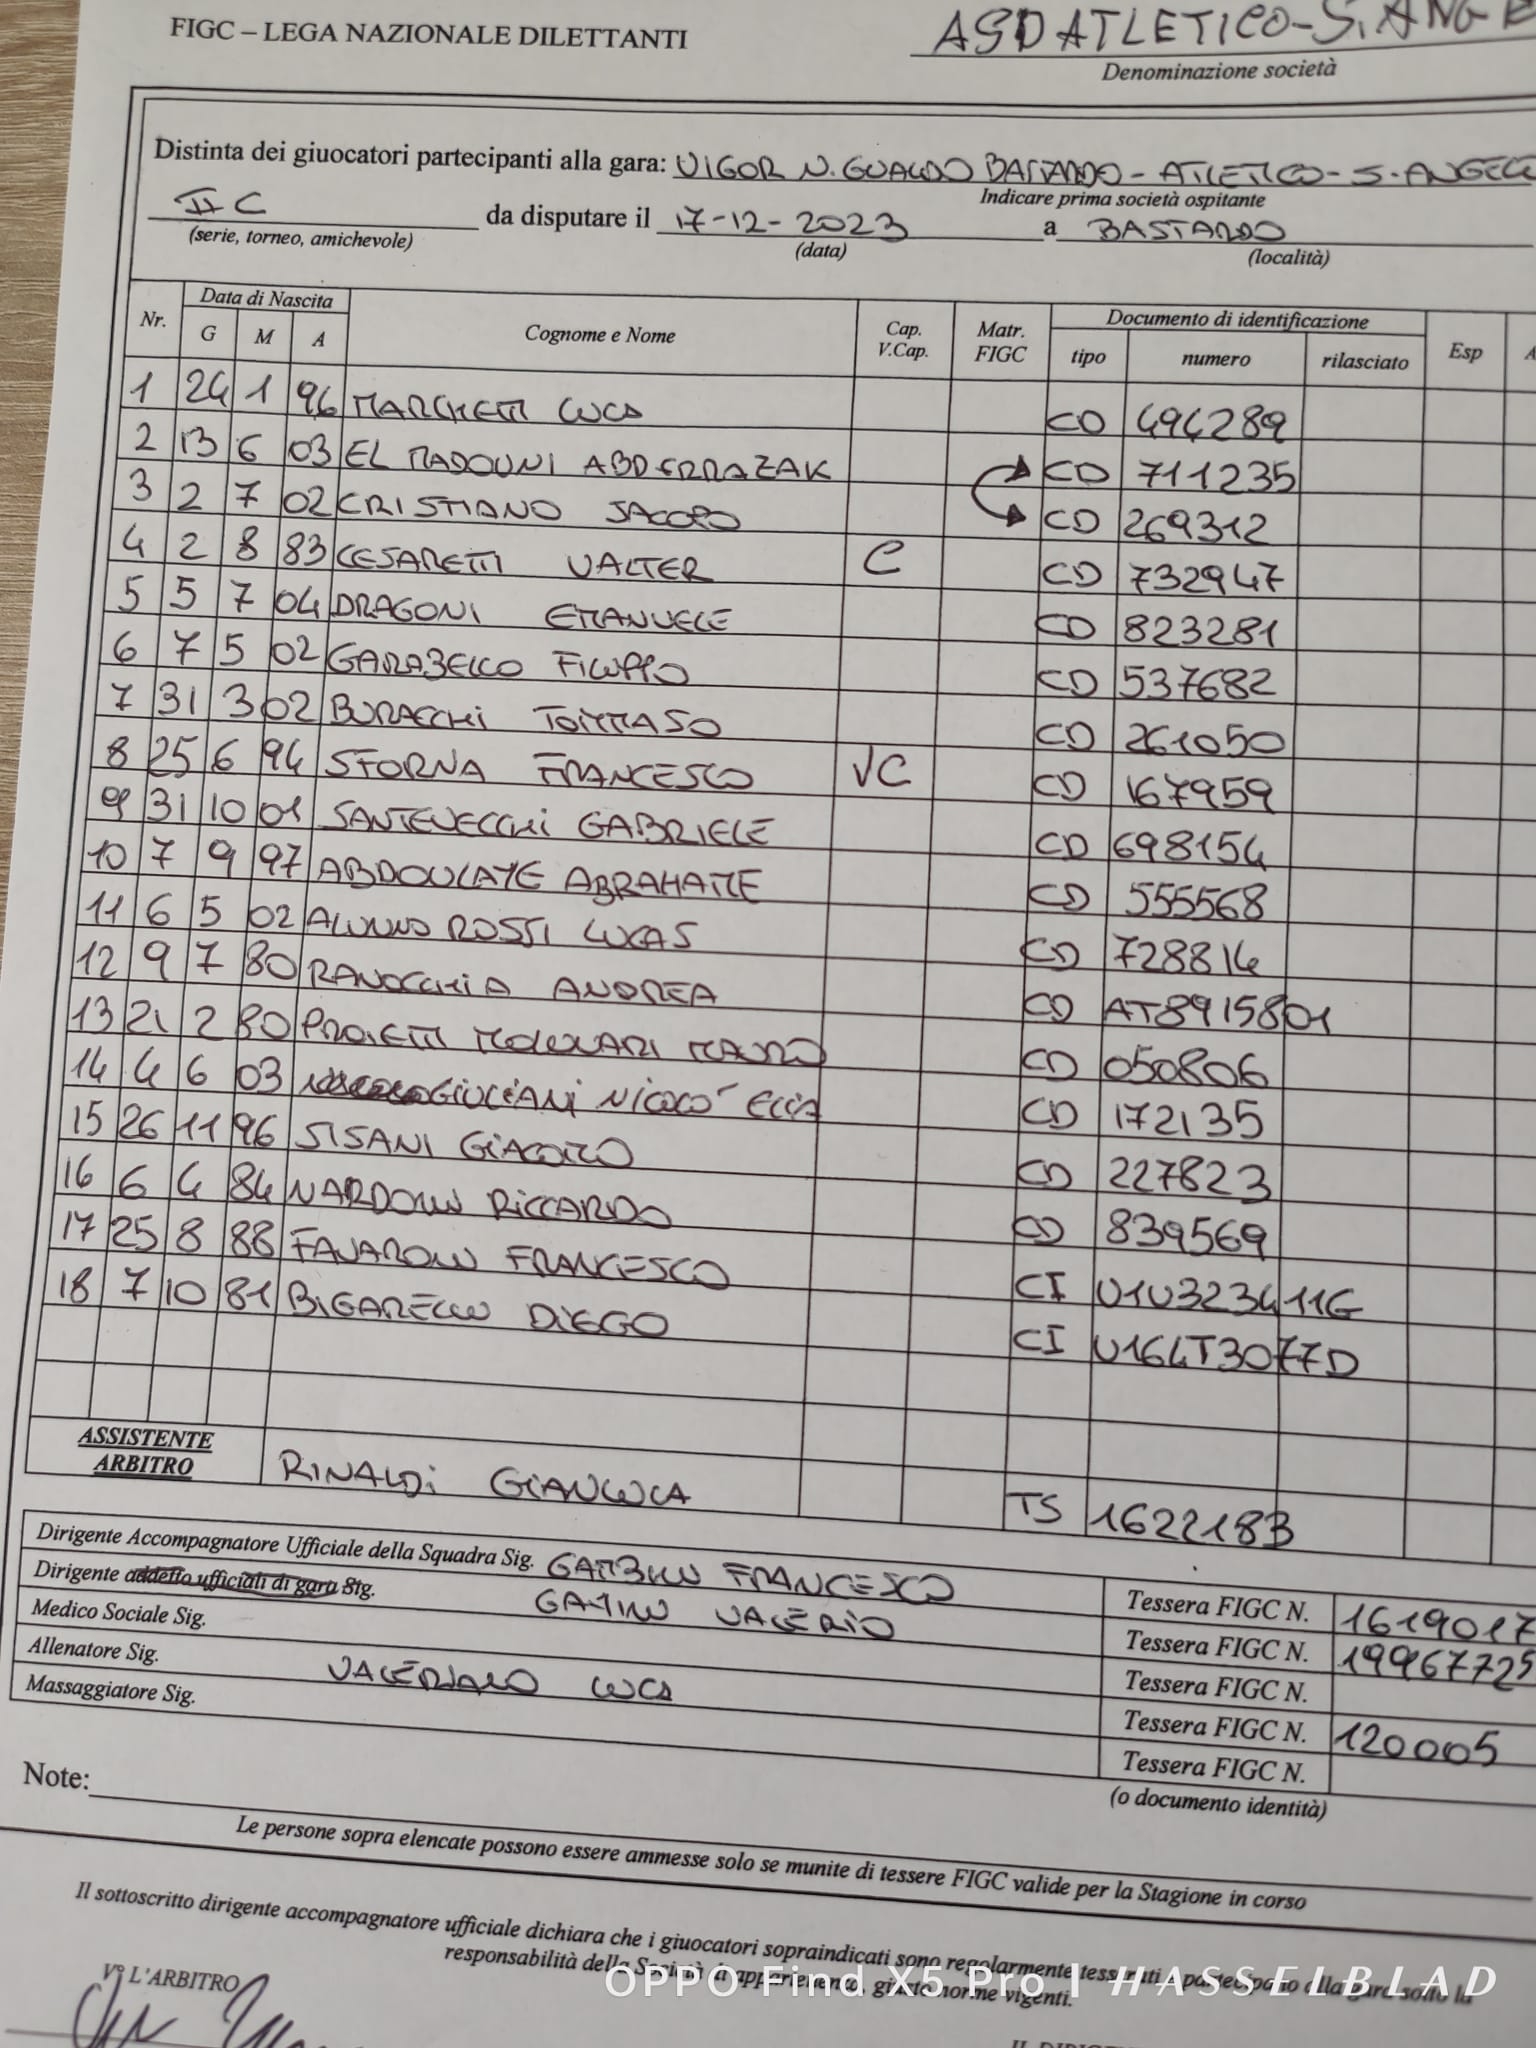 FIGC – LEGA NAZIONALE DILETTANTI
ASD ATLETICO-S. ANGE
Denominazione società
Distinta dei giuocatori partecipanti alla gara: VIGOR N. GUALDO BASTARDO - ATLETICO - S. ANGELO
Indicare prima società ospitante
II C da disputare il 17-12-2023 a BASTARDO
(serie, torneo, amichevole) (data) (località)
Nr. Data di Nascita Cognome e Nome Cap. V.Cap. Matr. FIGC Documento di identificazione Esp A
G M A tipo numero rilasciato
1 24 1 96 MARCHETTI LUCA CD 494289
2 13 6 03 EL MADOUNI ABDERRAZAK CD 711235
3 2 7 02 CRISTIANO JACOPO CD 269312
4 2 8 83 CESARETTI VALTER C CD 732947
5 5 7 04 DRAGONI EMANUELE CD 823281
6 7 5 02 GARABELLO FILIPPO CD 537682
7 31 3 02 BURACCHI TOMMASO CD 261050
8 25 6 94 STORNA FRANCESCO VC CD 167959
9 31 10 01 SANTEVECCHI GABRIELE CD 698154
10 7 9 97 ABDOULAYE ABRAHAME CD 555568
11 6 5 02 ALUNNO ROSSI LUCAS CD 728814
12 9 7 80 RANOCCHIA ANDREA CD AT8915801
13 21 2 80 PROIETTI MOLINARI MAURO CD 050806
14 4 6 03 GIULIANI NICOLO' ELIA CD 172135
15 26 11 96 SISANI GIACOMO CD 227823
16 6 4 84 NARDONI RICCARDO CD 839569
17 25 8 88 FAVARONI FRANCESCO CI U1U323411G
18 7 10 81 BIGARELLI DIEGO CI U164T3077D
ASSISTENTE
ARBITRO RINALDI GIANLUCA TS 1622183
Dirigente Accompagnatore Ufficiale della Squadra Sig. GAMBINI FRANCESCO Tessera FIGC N. 1619017
Dirigente addetto ufficiali di gara Sig. VALERIO Tessera FIGC N. 19967725
Medico Sociale Sig. Tessera FIGC N.
Allenatore Sig. VALERIANO LUCA Tessera FIGC N. 120005
Massaggiatore Sig. Tessera FIGC N.
(o documento identità)
Note:
Le persone sopra elencate possono essere ammesse solo se munite di tessere FIGC valide per la Stagione in corso
Il sottoscritto dirigente accompagnatore ufficiale dichiara che i giuocatori sopraindicati sono regolarmente tesserati e partecipano alla gara sotto la
responsabilità della Società di appartenenza, giuste norme vigenti.
V° L'ARBITRO
OPPO Find X5 Pro | HASSELBLAD